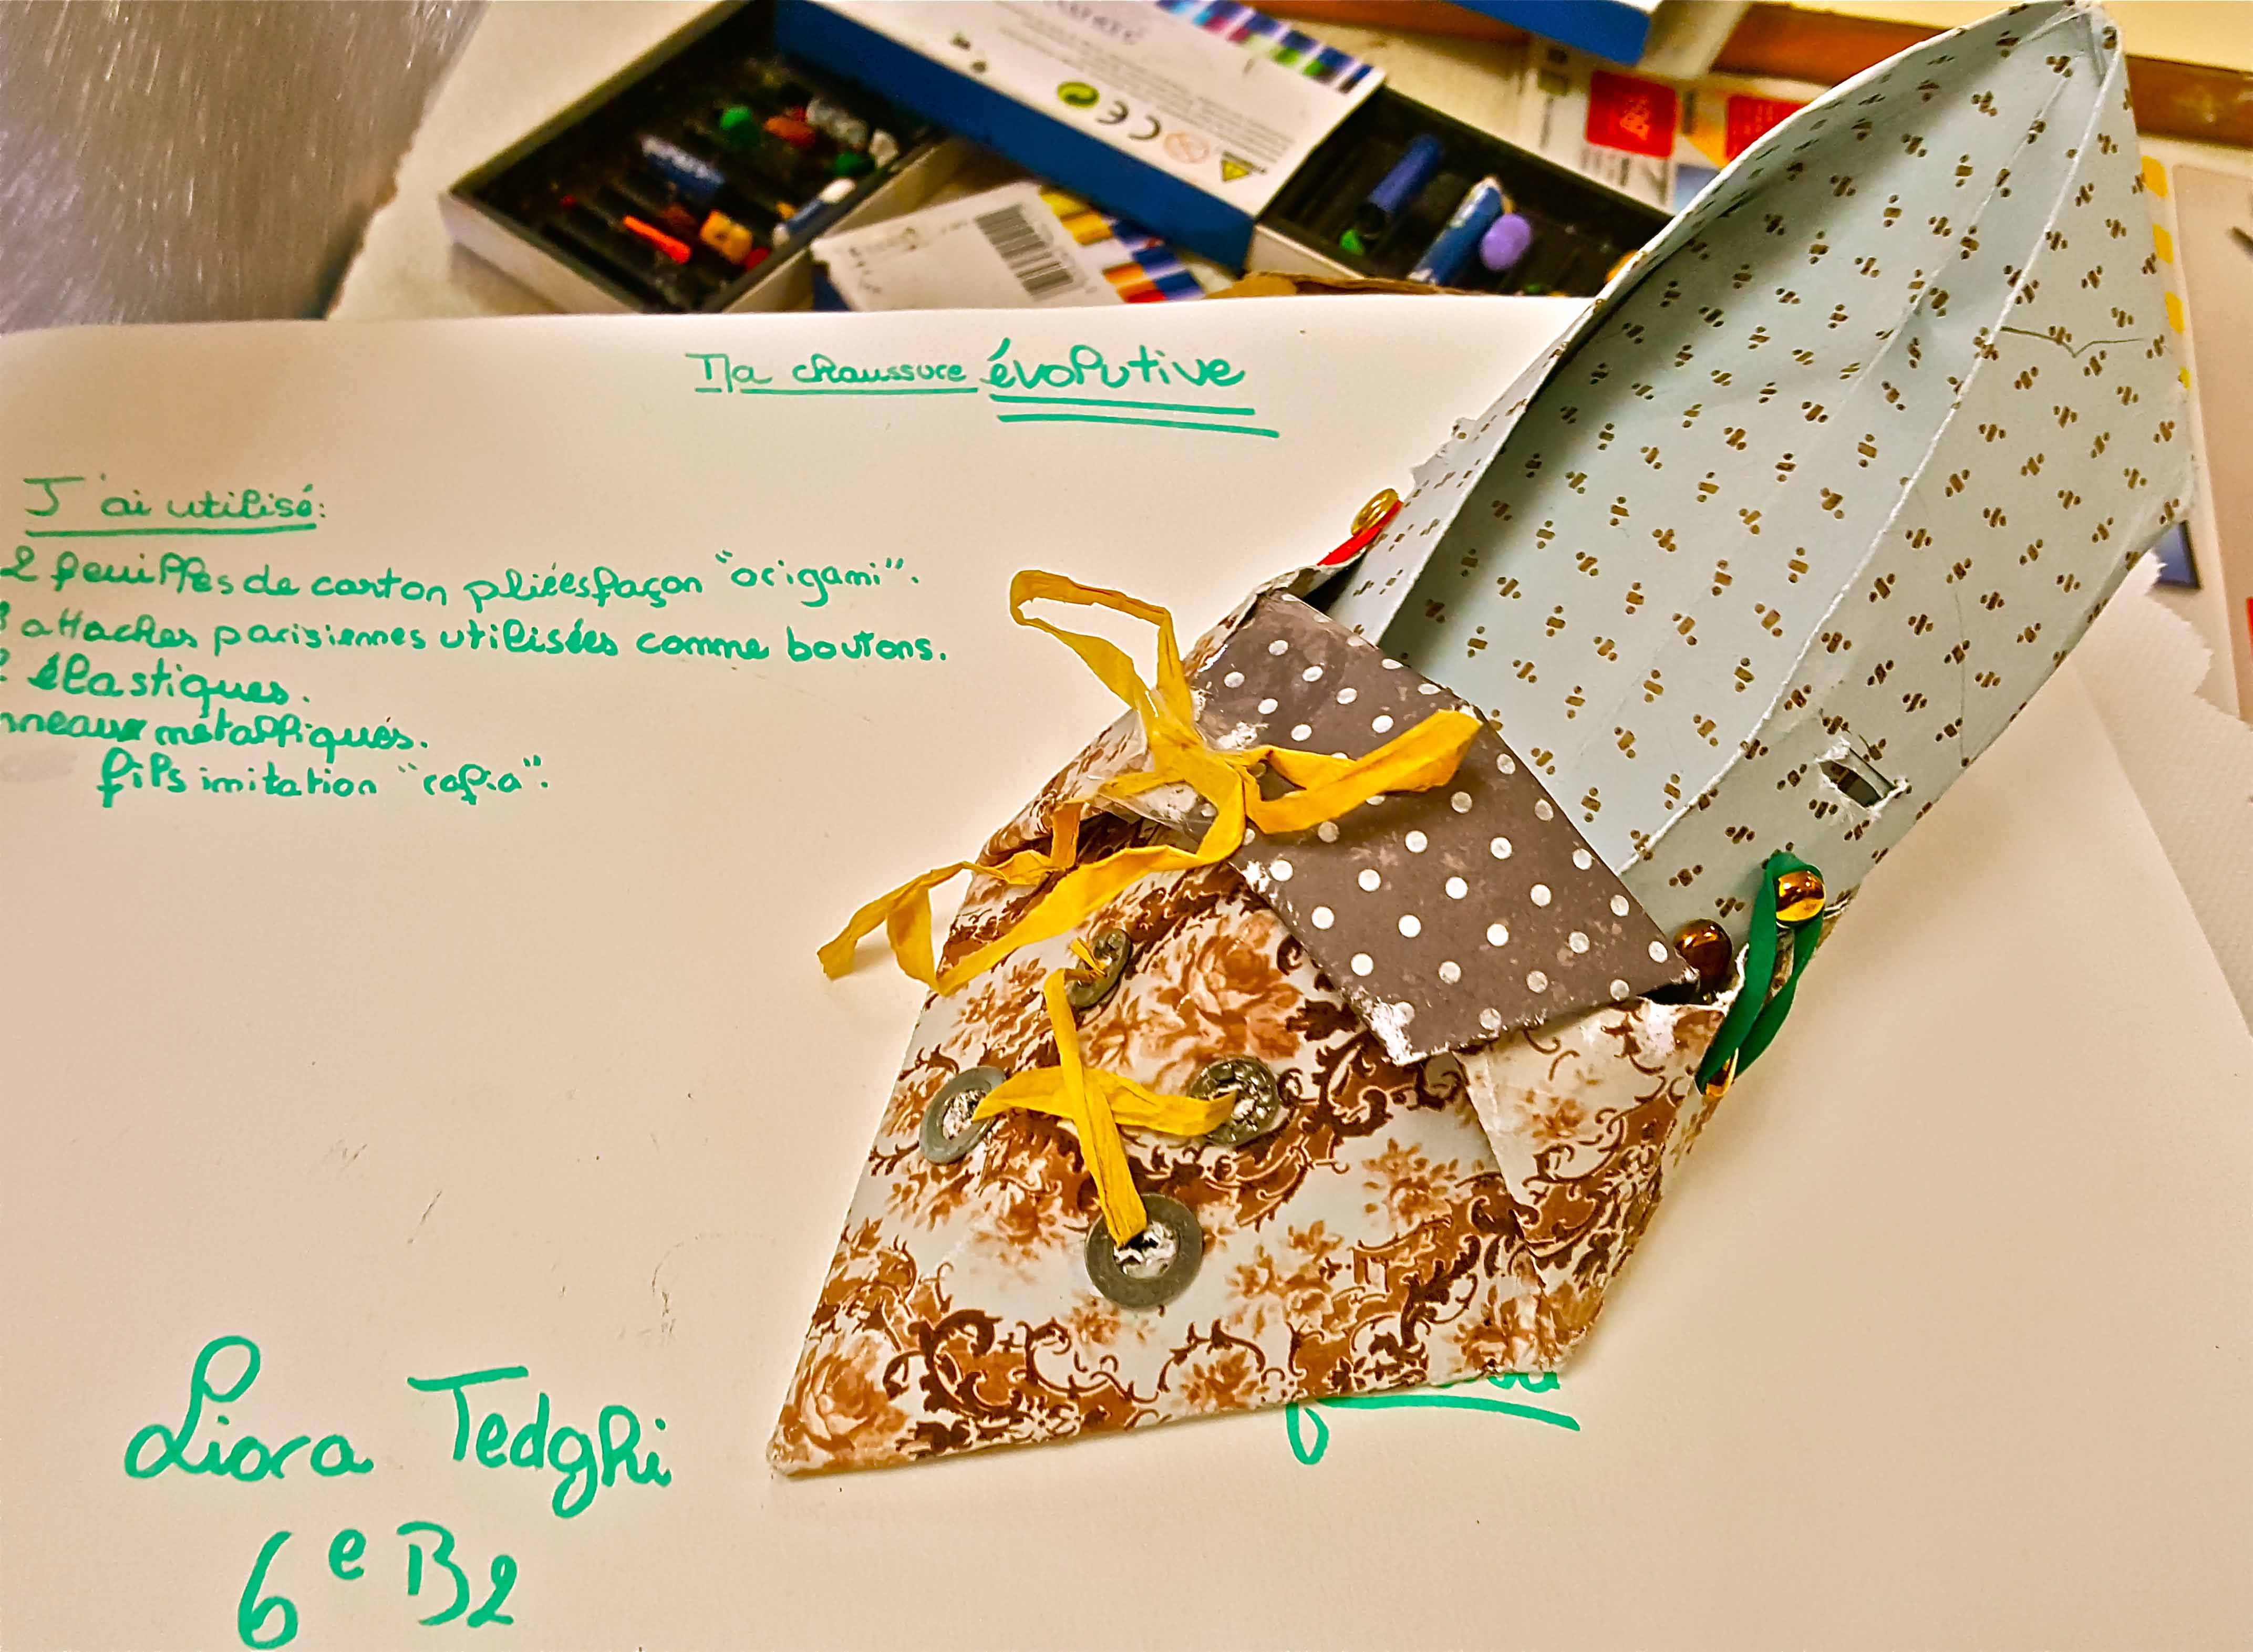 CE
Ma chaussure évolutive
J'ai utilisé:
2 feuilles de carton pliées façon "origami".
attaches parisiennes utilisées comme boutons.
élastiques.
métalliqués.
fils imitation "rafia".
Liora Tedghi
6e B2